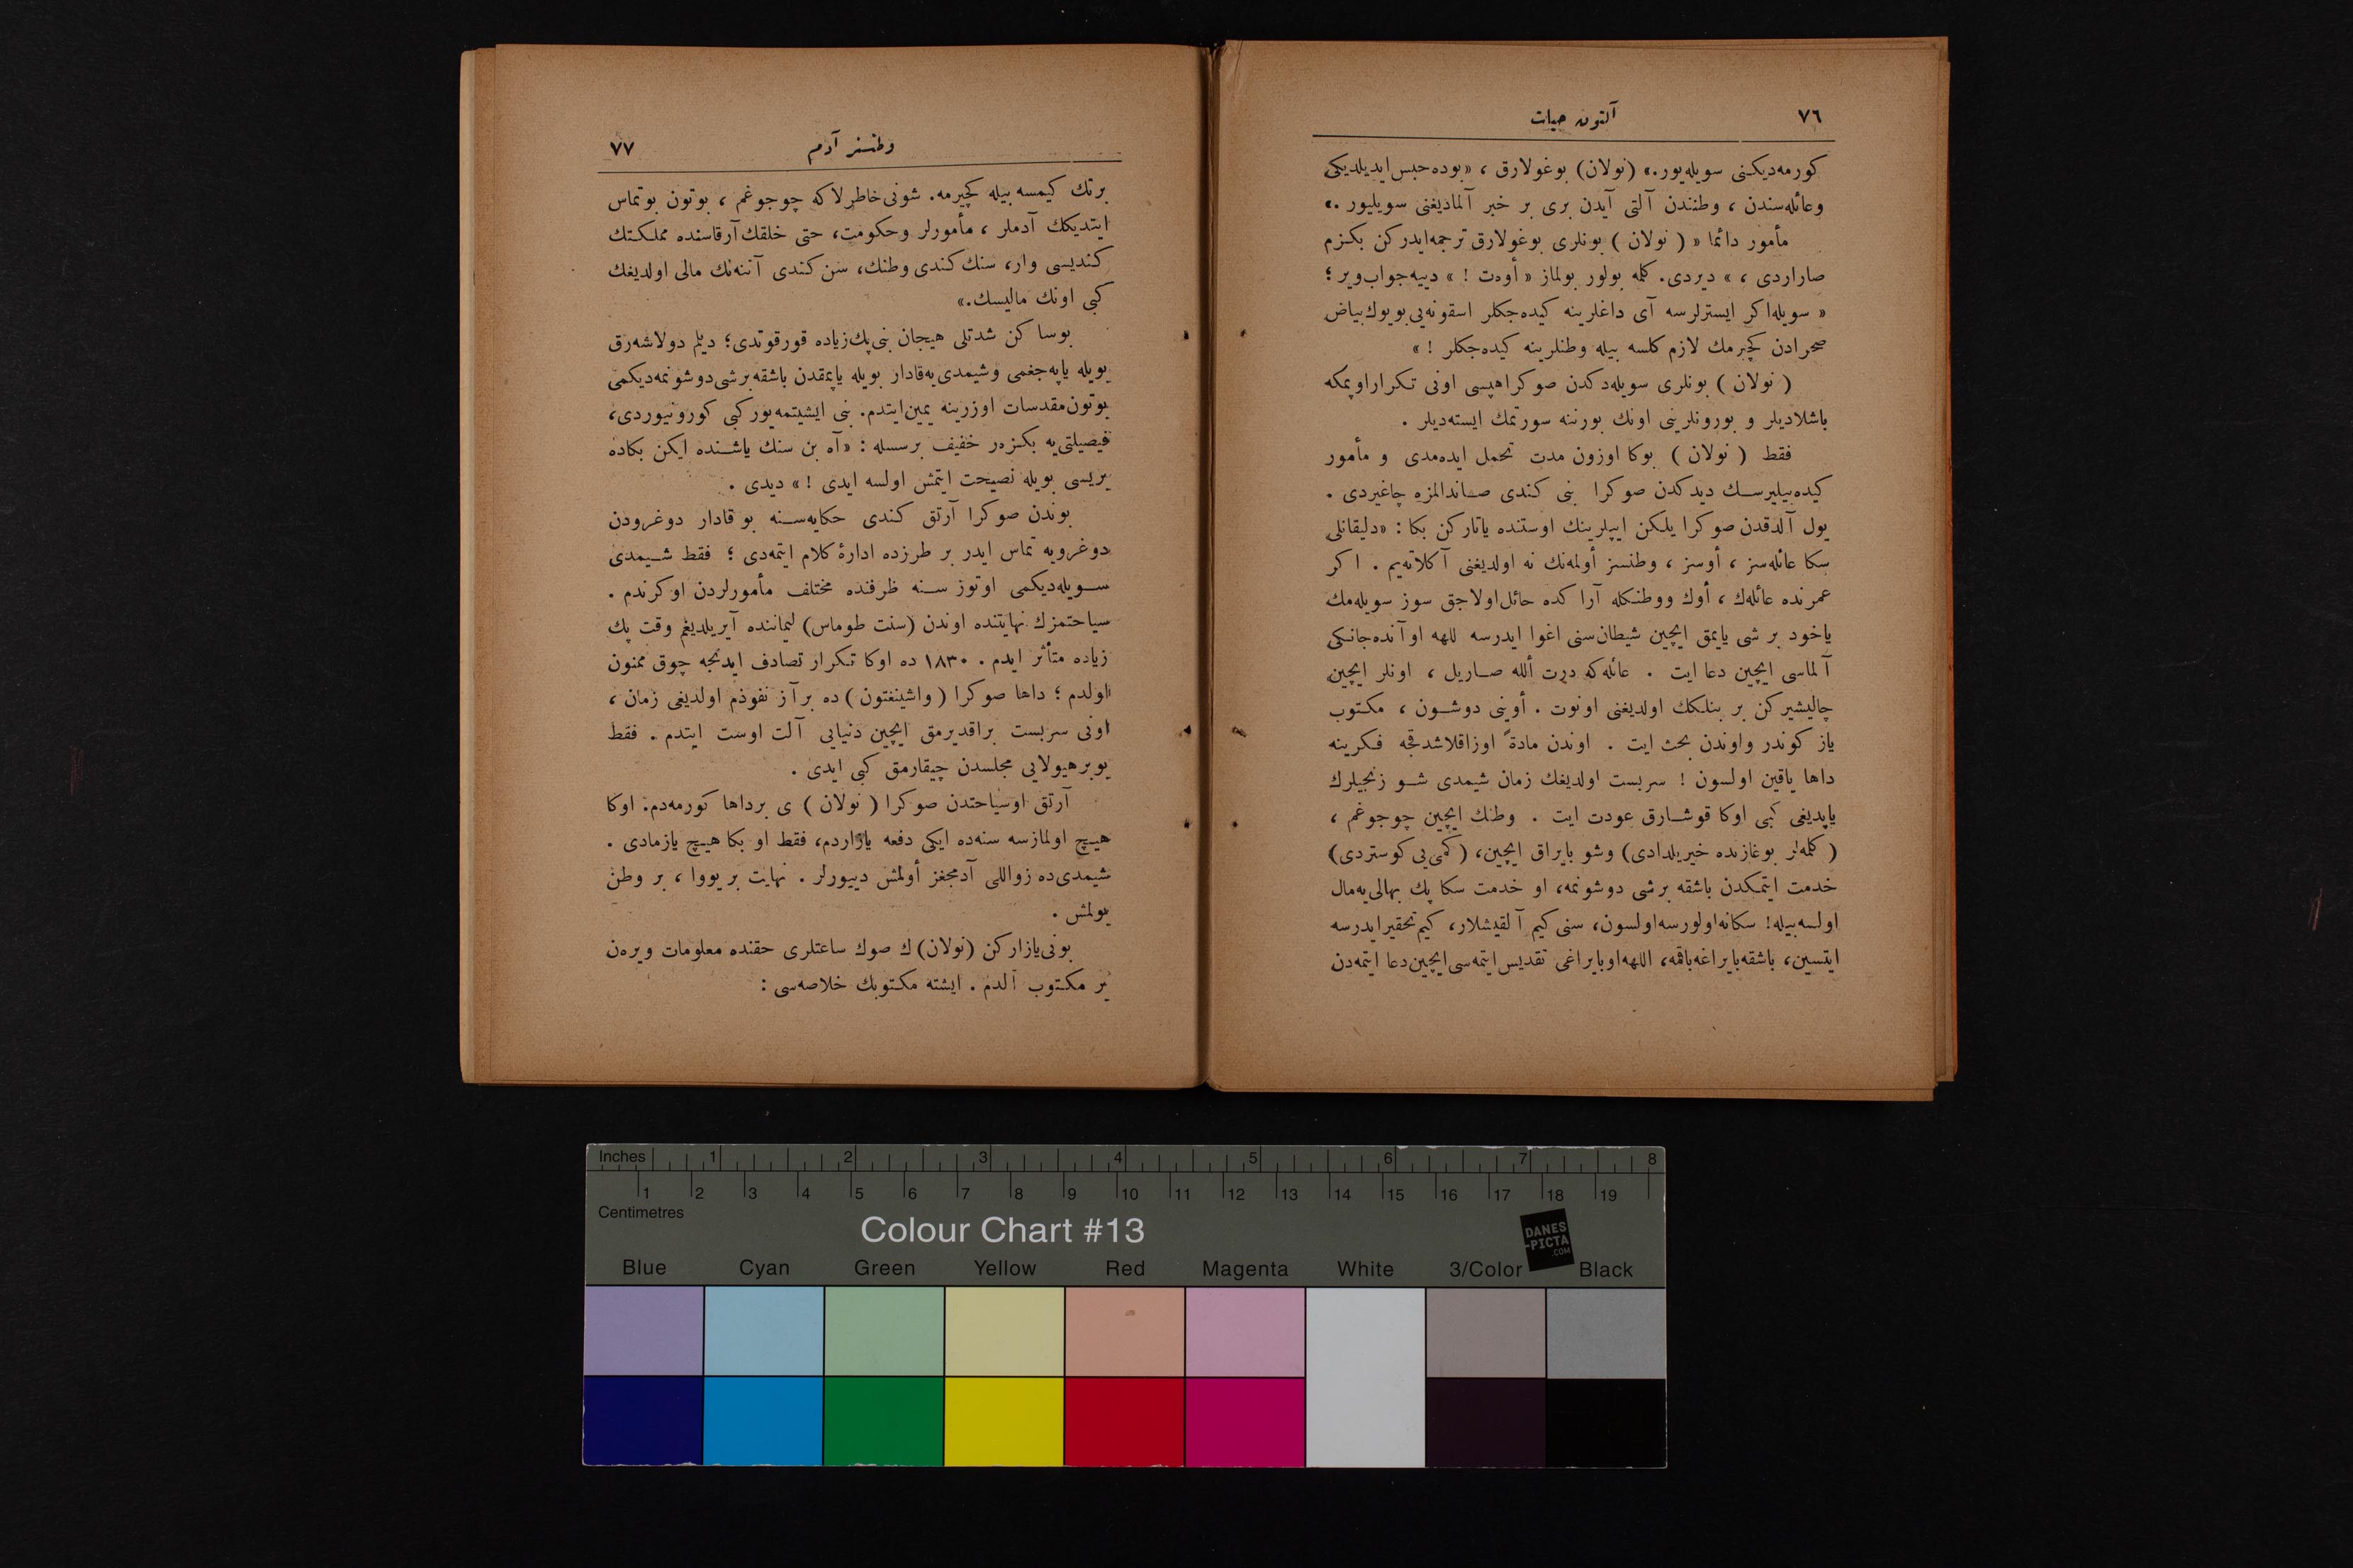 ٧٦
آلتون حیات
كورمه‌دیكنی سویله‌یور.» (نولان) بوغولارق ، «بوده حبس ایدیلدیكی
وعائله‌سندن ، وطنندن آلتی آیدن بری بر خبر آلمادیغنی سویلیور .»
مأمور دائما « ( نولان ) بونلری بوغولارق ترجمه ایدركن بكزم
صاراردی ، » دیردی. كله بولور بولماز « أوه‌ت ! » دییه جواب ویر ؛
« سویله اكر ایسترلرسه آی داغلرینه كیده‌جكلر اسقونه‌یی بویوك بیاض
صحرادن كچیرمك لازم كلسه بیله وطنلرینه كیده‌جكلر ! »
( نولان ) بونلری سویله‌دكدن صوكرا هپسی اونی تكرار اوپمكه
باشلادیلر و بورونلرینی اونك بورننه سورتمك ایسته‌دیلر .
فقط ( نولان ) بوكا اوزون مدت تحمل ایده‌مدی و مأمور
كیده‌بیلیرسك دیدكدن صوكرا بنی كندی صاندالمزه چاغیردی .
یول آلدقدن صوكرا یلكن ایپلرینك اوستنده یاتاركن بكا : «دلیقانلی
سكا عائله‌سز ، أوسز ، وطنسز أولمه‌نك نه اولدیغنی آكلاته‌یم . اكر
عمرنده عائله‌ك ، أوك ووطنكله آراكده حائل اولاجق سوز سویله‌مك
یاخود بر شی یاپمق ایچین شیطان سنی اغوا ایدرسه للهه او آنده جانكی
آلماسی ایچین دعا ایت . عائله‌كه درت ألله صاریل ، اونلر ایچین
چالیشیركن بر بنلكك اولدیغنی اونوت . أوینی دوشون ، مكتوب
یاز كوندر واوندن بحث ایت . اوندن مادةً اوزاقلاشدقجه فكرینه
داها یاقین اولسون ! سربست اولدیغك زمان شیمدی شو زنجیلرك
یاپدیغی كبی اوكا قوشارق عودت ایت . وطنك ایچین چوجوغم ،
( كله‌لر بوغازنده خیریلدادی) وشو بایراق ایچین، (كمی‌یی كوستردی)
خدمت ایتمكدن باشقه برشی دوشونمه، او خدمت سكا پك بهالی‌یه مال
اولسه بیله! سكانه اولورسه اولسون، سنی كیم آلقیشلار، كیم تحقیر ایدرسه
ایتسین، باشقه بایراغه باقمه، اللهه اوبایراغی تقدیس ایتمه‌سی ایچین دعا ایتمه‌دن
وطنسز آدم
٧٧
برتك كیمسه بیله كچیرمه. شونی خاطرلاكه چوجوغم ، بوتون بوتماس
ایتدیكك آدملر ، مأمورلر وحكومت، حتی خلقك آرقاسنده مملكتك
كندیسی وار، سنك كندی وطنك، سن كندی آننه‌نك مالی اولدیغك
كبی اونك مالیسك.»
بوساكن شدتلی هیجان بنی پك زیاده قورقوتدی؛ دیلم دولاشه‌رق
بویله یاپه‌جغمی وشیمدی‌یه‌قادار بویله یاپمقدن باشقه برشی دوشونمه‌دیكمی
بوتون مقدسات اوزرینه یمین ایتدم. بنی ایشیتمه‌یور كبی كورونیوردی،
فیصیلتی‌یه بكزه‌ر خفیف برسسله : «آه بن سنك یاشنده ایكن بكاده
بریسی بویله نصیحت ایتمش اولسه ایدی ! » دیدی .
بوندن صوكرا آرتق كندی حكایه‌سنه بوقادار دوغرودن
دوغرویه تماس ایدر بر طرزده ادارهٔ كلام ایتمه‌دی ؛ فقط شیمدی
سویله‌دیكمی اوتوز سنه ظرفنده مختلف مأمورلردن اوكرندم .
سیاحتمزك نهایتنده اوندن (سنت طوماس) لیماننده آیریلدیغم وقت پك
زیاده متأثر ایدم . ١٨٣٠ ده اوكا تكرار تصادف ایدنجه چوق ممنون
اولدم ؛ داها صوكرا ( واشینغتون ) ده بر آز نفوذم اولدیغی زمان ،
اونی سربست براقدیرمق ایچین دنیایی آلت اوست ایتدم . فقط
بوبر هیولایی مجلسدن چیقارمق كبی ایدی .
آرتق اوسیاحتدن صوكرا ( نولان ) ی برداها كورمه‌دم. اوكا
هیچ اولمازسه سنه‌ده ایكی دفعه یازاردم، فقط او بكا هیچ یازمادی .
شیمدی‌ده زواللی آدمجغز أولمش دییورلر . نهایت بر یووا ، بر وطن
بولمش .
بونی یازاركن (نولان) ك صوك ساعتلری حقنده معلومات ویره‌ن
بر مكتوب آلدم . ایشته مكتوبك خلاصه‌سی :
Inches 1 2 3 4 5 6 7 8
1 2 3 4 5 6 7 8 9 10 11 12 13 14 15 16 17 18 19
Centimetres
Colour Chart #13
DANES
-PICTA
.COM
Blue Cyan Green Yellow Red Magenta White 3/Color Black